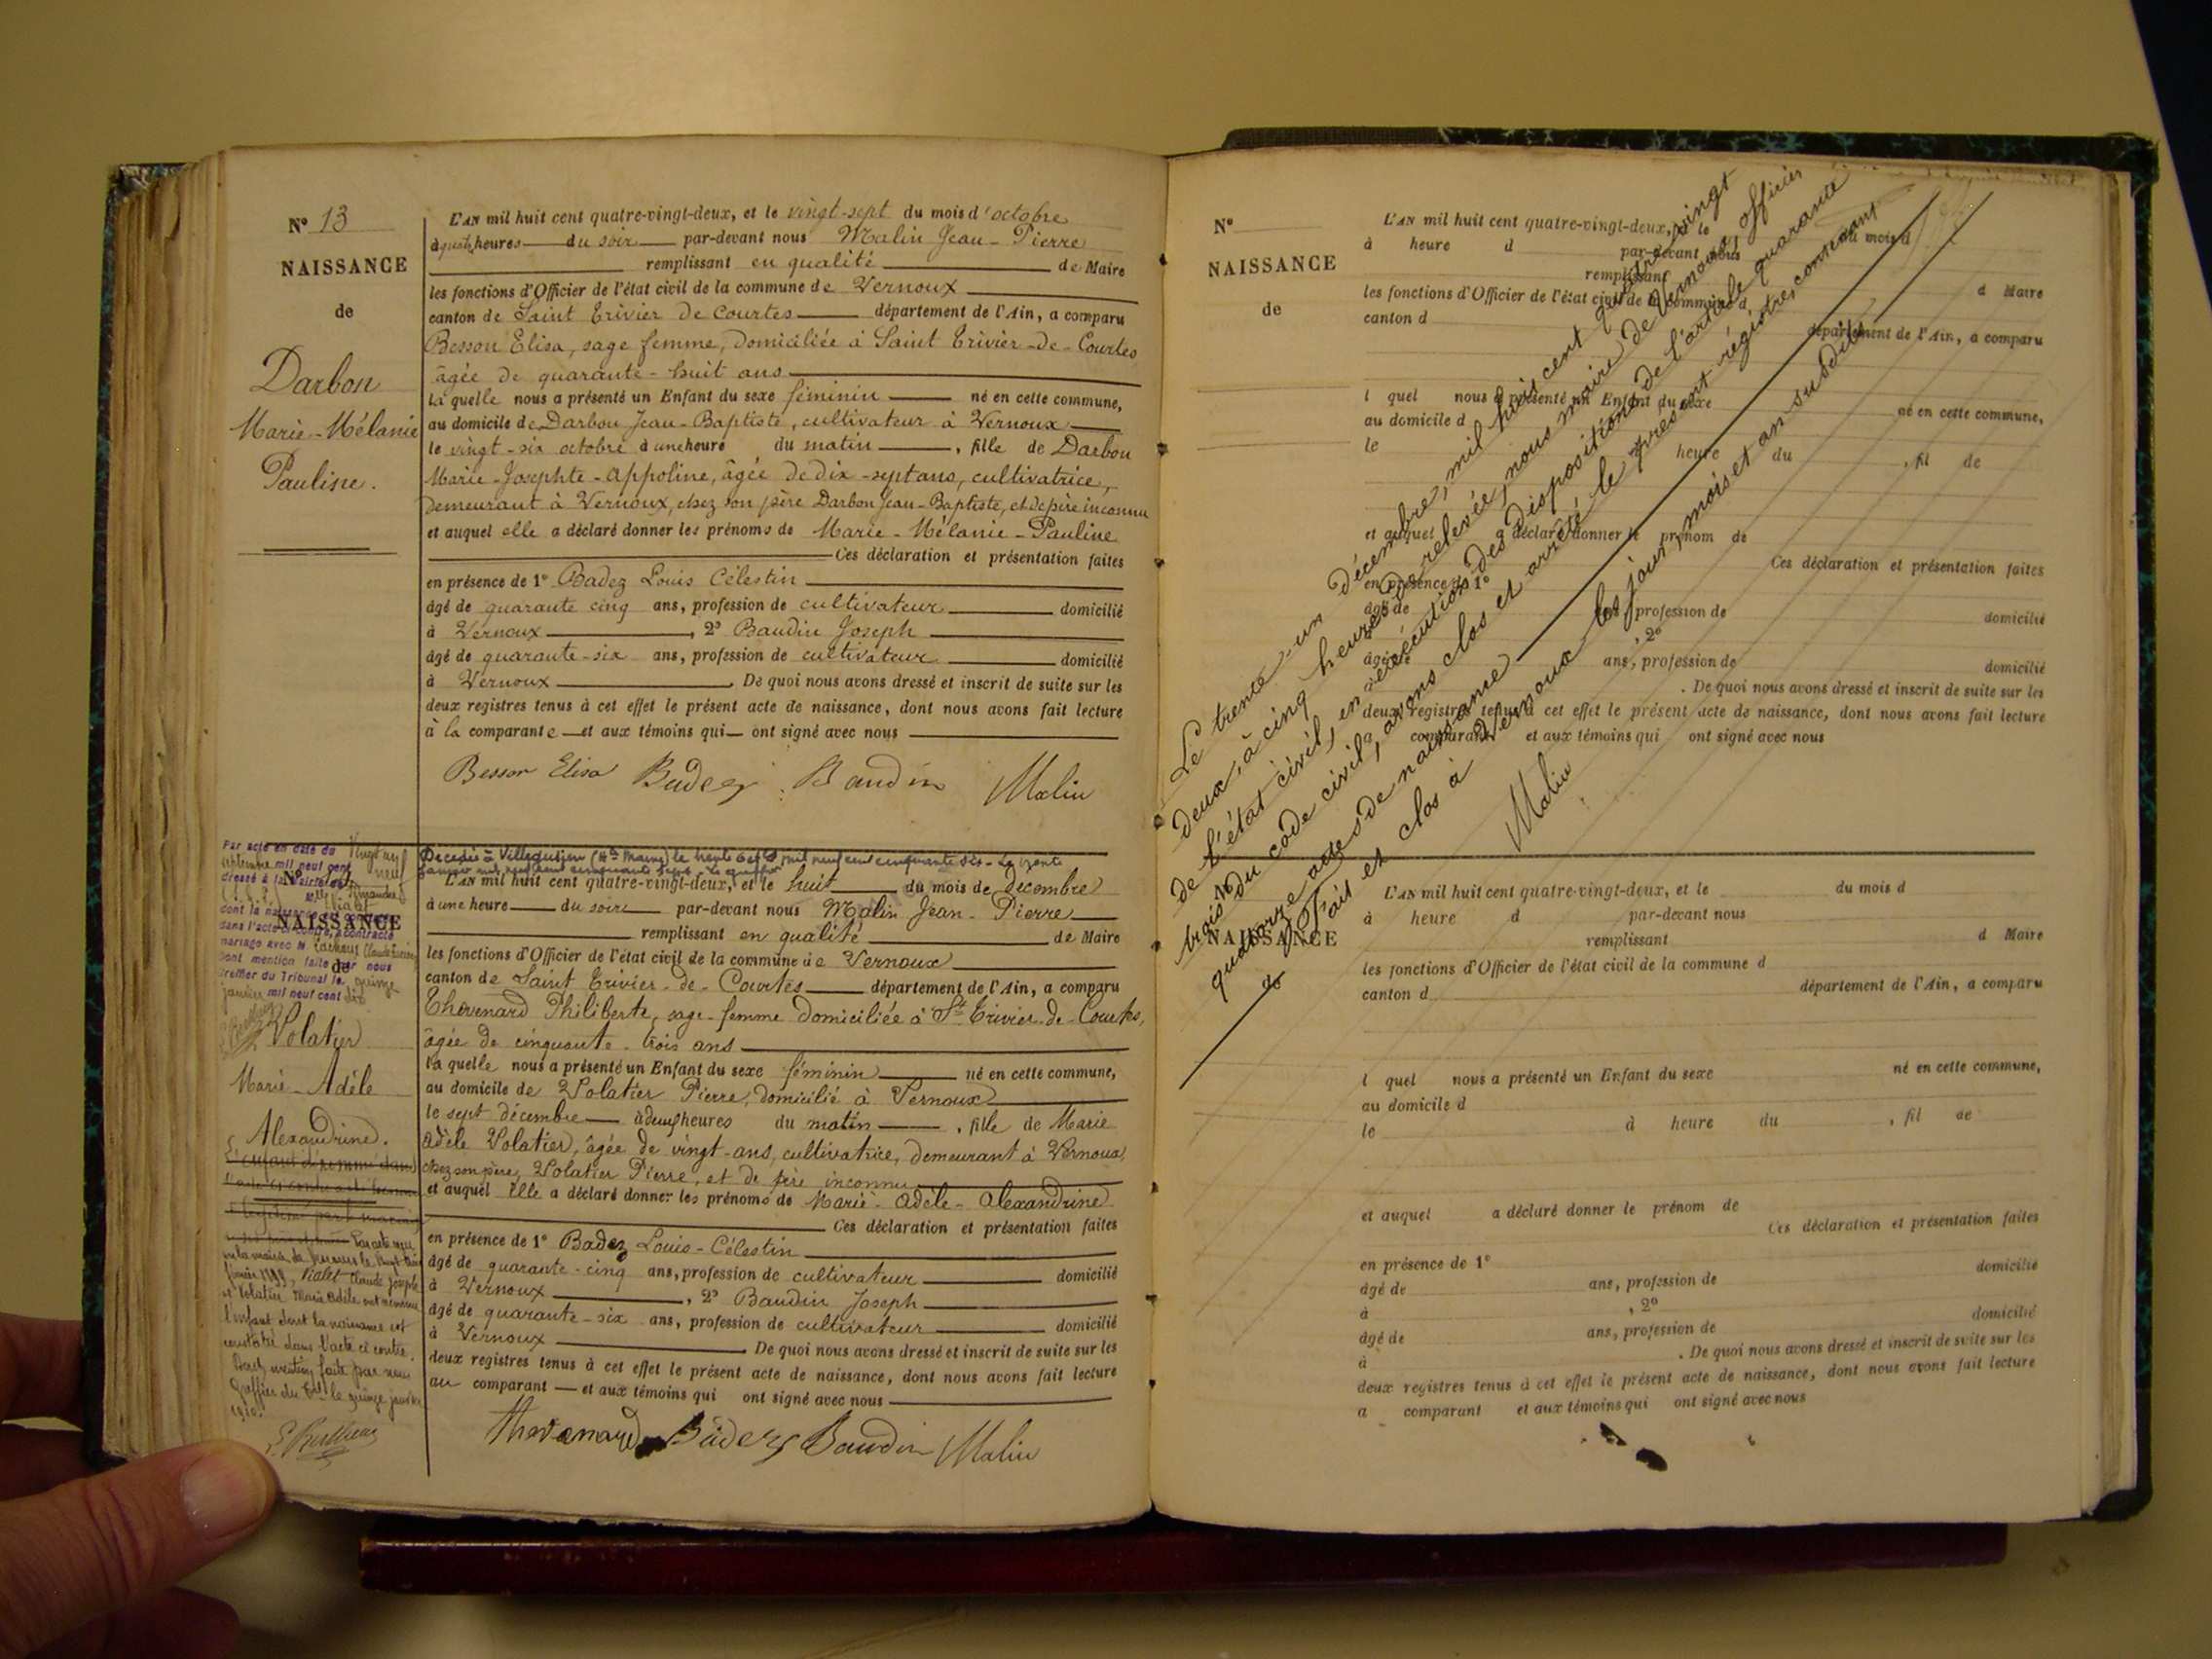 N° 13
NAISSANCE
de
Darbon
Marie-Mélanie
Pauline.
L'AN mil huit cent quatre-vingt-deux, et le vingt-sept du mois d'octobre
à quatre heures du soir par-devant nous Malin Jean-Pierre
remplissant en qualité de Maire
les fonctions d'Officier de l'état civil de la commune de Vernoux
canton de Saint Trivier de Courtes département de l'Ain, a comparu
Besson Elisa, sage femme, domiciliée à Saint Trivier-de-Courtes
âgée de quarante-huit ans
la quelle nous a présenté un Enfant du sexe féminin né en cette commune,
au domicile de Darbon Jean-Baptiste, cultivateur à Vernoux
le vingt-six octobre à une heure du matin, fille de Darbon
Marie-Josephte-Appoline, âgée de dix-sept ans, cultivatrice,
demeurant à Vernoux, chez son père Darbon Jean-Baptiste, et de père inconnu
et auquel elle a déclaré donner les prénoms de Marie-Mélanie-Pauline
Ces déclaration et présentation faites
en présence de 1° Badez Louis Célestin
âgé de quarante cinq ans, profession de cultivateur domicilié
à Vernoux, 2° Baudin Joseph
âgé de quarante-six ans, profession de cultivateur domicilié
à Vernoux. De quoi nous avons dressé et inscrit de suite sur les
deux registres tenus à cet effet le présent acte de naissance, dont nous avons fait lecture
à la comparante et aux témoins qui ont signé avec nous
Besson Elisa Badez Baudin Malin
Par acte en date du vingt un
septembre mil neuf cent neuf
dressé à la Mairie de
dont la naissance est constatée
dans l'acte ci-contre, a contracté
mariage avec M
dont mention faite par nous
Greffier du Tribunal le quinze
janvier mil neuf cent dix
N°
NAISSANCE
de
Volatier
Marie-Adèle
Alexandrine.
Par acte reçu
en la mairie de Vernoux le
février 1899, Vialet Claude Joseph
et Volatier Marie Adèle ont reconnu
l'enfant dont la naissance est
constatée dans l'acte ci contre.
Dont mention faite par nous
Greffier du Tal le quinze janvier
1910.
Décédée à Villegusien (Hte Marne) le trente mil neuf cent cinquante six - Le trente
janvier mil neuf cent cinquante sept. Le greffier
L'AN mil huit cent quatre-vingt-deux, et le huit du mois de décembre
à une heure du soir par-devant nous Malin Jean-Pierre
remplissant en qualité de Maire
les fonctions d'Officier de l'état civil de la commune de Vernoux
canton de Saint Trivier-de-Courtes département de l'Ain, a comparu
Thevenard Philiberte, sage-femme domiciliée à St Trivier-de-Courtes,
âgée de cinquante-trois ans
la quelle nous a présenté un Enfant du sexe féminin né en cette commune,
au domicile de Volatier Pierre, domicilié à Vernoux
le sept décembre à deux heures du matin, fille de Marie
Adèle Volatier, âgée de vingt-ans, cultivatrice, demeurant à Vernoux,
chez son père, Volatier Pierre, et de père inconnu
et auquel elle a déclaré donner les prénoms de Marie-Adèle-Alexandrine
Ces déclaration et présentation faites
en présence de 1° Badez Louis-Célestin
âgé de quarante-cinq ans, profession de cultivateur domicilié
à Vernoux, 2° Baudin Joseph
âgé de quarante-six ans, profession de cultivateur domicilié
à Vernoux. De quoi nous avons dressé et inscrit de suite sur les
deux registres tenus à cet effet le présent acte de naissance, dont nous avons fait lecture
au comparant et aux témoins qui ont signé avec nous
Thevenard Badez Baudin Malin
Le trente-un décembre, mil huit cent quatre-vingt
deux, à cinq heures de relevée, nous maire de Vernoux, officier
de l'état civil, en exécution des dispositions de l'article quarante
trois du code civil, avons clos et arrêté le présent régistre, contenant
quatorze actes de naissance
Fait et clos à Vernoux les jour, mois et an susdits
Malin
N°
NAISSANCE
de
L'AN mil huit cent quatre-vingt-deux, et le du mois d
à heure d par-devant nous
remplissant d Maire
les fonctions d'Officier de l'état civil de la commune d
canton d département de l'Ain, a comparu
l quel nous a présenté un Enfant du sexe né en cette commune,
au domicile d
le heure du , fil de
et auquel a déclaré donner le prénom de
Ces déclaration et présentation faites
en présence de 1°
âgé de ans, profession de domicilié
, 2°
âgé de ans, profession de domicilié
. De quoi nous avons dressé et inscrit de suite sur les
deux registres tenus à cet effet le présent acte de naissance, dont nous avons fait lecture
a comparant et aux témoins qui ont signé avec nous
N°
NAISSANCE
de
L'AN mil huit cent quatre-vingt-deux, et le du mois d
à heure d par-devant nous
remplissant d Maire
les fonctions d'Officier de l'état civil de la commune d
canton d département de l'Ain, a comparu
l quel nous a présenté un Enfant du sexe né en cette commune,
au domicile d
le à heure du , fil de
et auquel a déclaré donner le prénom de
Ces déclaration et présentation faites
en présence de 1°
âgé de ans, profession de domicilié
à , 2°
âgé de ans, profession de domicilié
à . De quoi nous avons dressé et inscrit de suite sur les
deux registres tenus à cet effet le présent acte de naissance, dont nous avons fait lecture
a comparant et aux témoins qui ont signé avec nous